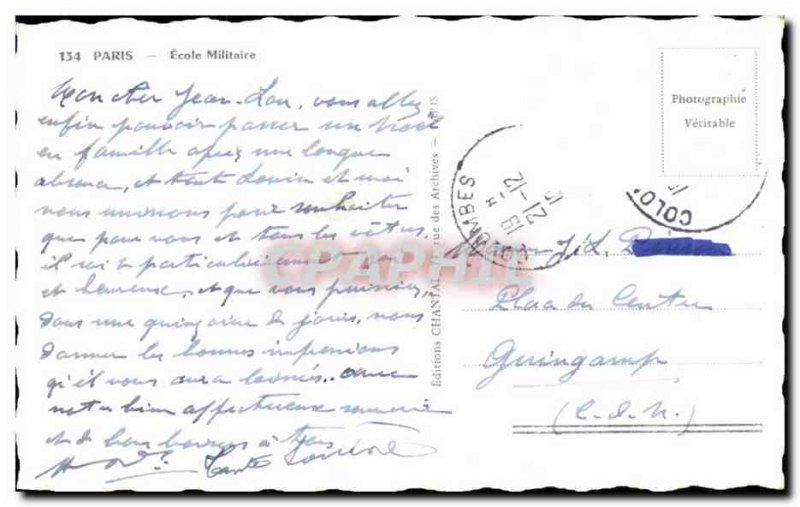 134 PARIS — École Militaire
Mon cher Jean-Lou, vous allez
enfin pouvoir passer un Noël
en famille après une longue
absence, et tout Louis et moi
nous unissons pour souhaiter
que pour vous et tous les vôtres,
il soit particulièrement
et heureux, et que vous puissiez,
dans une quinzaine de jours, nous
donner les bonnes impressions
qu'il vous aura laissées.
notre bien affectueux souvenir
et de bons baisers à tous
Tante
Éditions CHANTAL, rue des Archives — PARIS
Photographie
Véritable
COLOMBES
19 H
12-12
COLO
J.L.
Place du Centre
Guingamp
(C.d.N.)
CPAPHIL